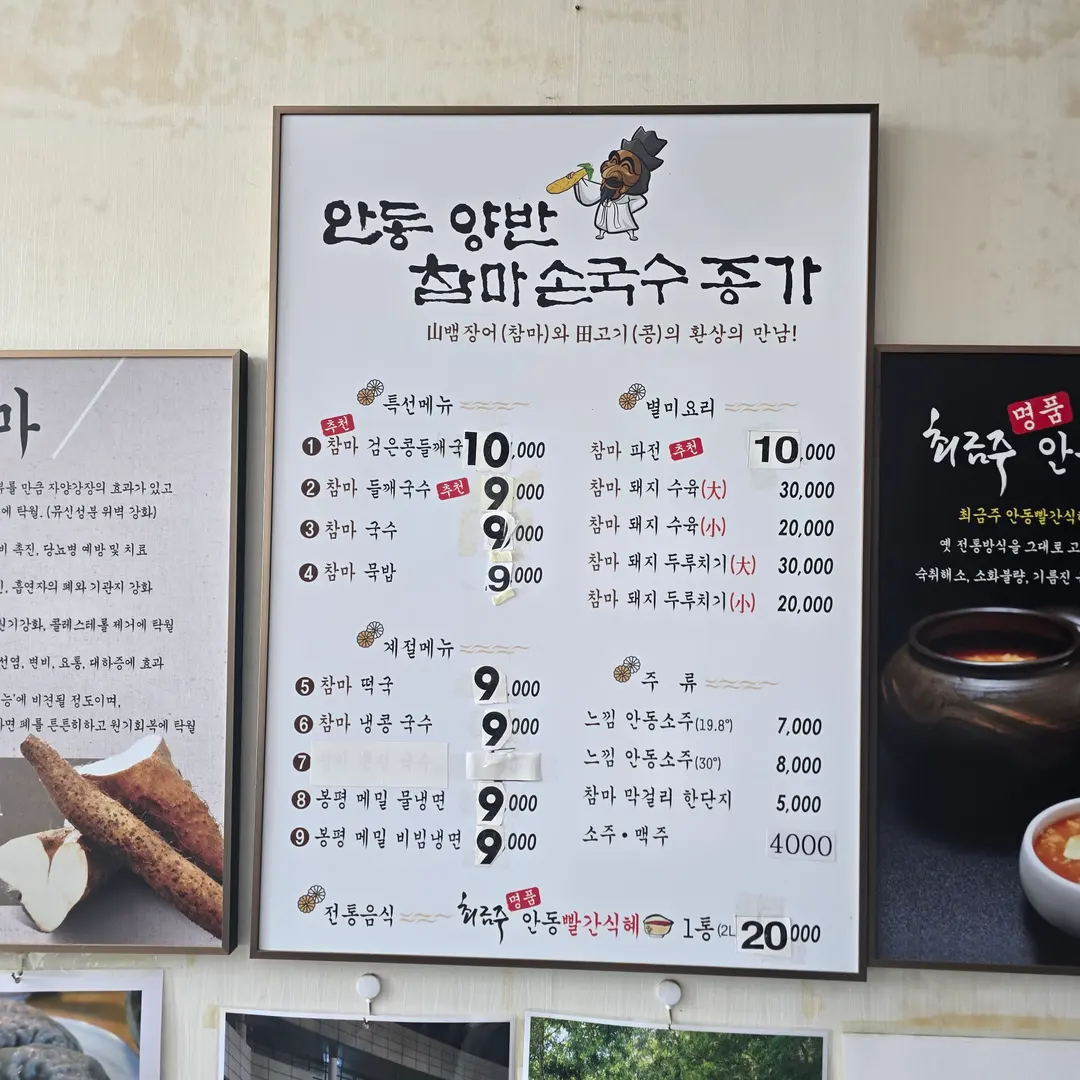 안동 양반
참마 손국수 종가
山뱀장어(참마)와 田고기(콩)의 환상의 만남!
특선메뉴
추천
❶ 참마 검은콩들깨국 10,000
❷ 참마 들깨국수 추천 9,000
❸ 참마 국수 9,000
❹ 참마 묵밥 9,000
계절메뉴
❺ 참마 떡국 9,000
❻ 참마 냉콩 국수 9,000
❼
❽ 봉평 메밀 물냉면 9,000
❾ 봉평 메밀 비빔냉면 9,000
별미요리
참마 파전 추천 10,000
참마 돼지 수육(大) 30,000
참마 돼지 수육(小) 20,000
참마 돼지 두루치기(大) 30,000
참마 돼지 두루치기(小) 20,000
주 류
느낌 안동소주(19.8°) 7,000
느낌 안동소주(30°) 8,000
참마 막걸리 한단지 5,000
소주•맥주 4000
전통음식 최금주 명품 안동빨간식혜 1통(2L 20000
마
만큼 자양강장의 효과가 있고
에 탁월. (뮤신성분 위벽 강화)
촉진, 당뇨병 예방 및 치료
흡연자의 폐와 기관지 강화
원기강화, 콜레스테롤 제거에 탁월
변비, 요통, 대하증에 효과
능'에 비견될 정도이며,
폐를 튼튼히하고 원기회복에 탁월
명품
최금주 안
최금주 안동빨간식
옛 전통방식을 그대로 고
숙취해소, 소화불량, 기름진